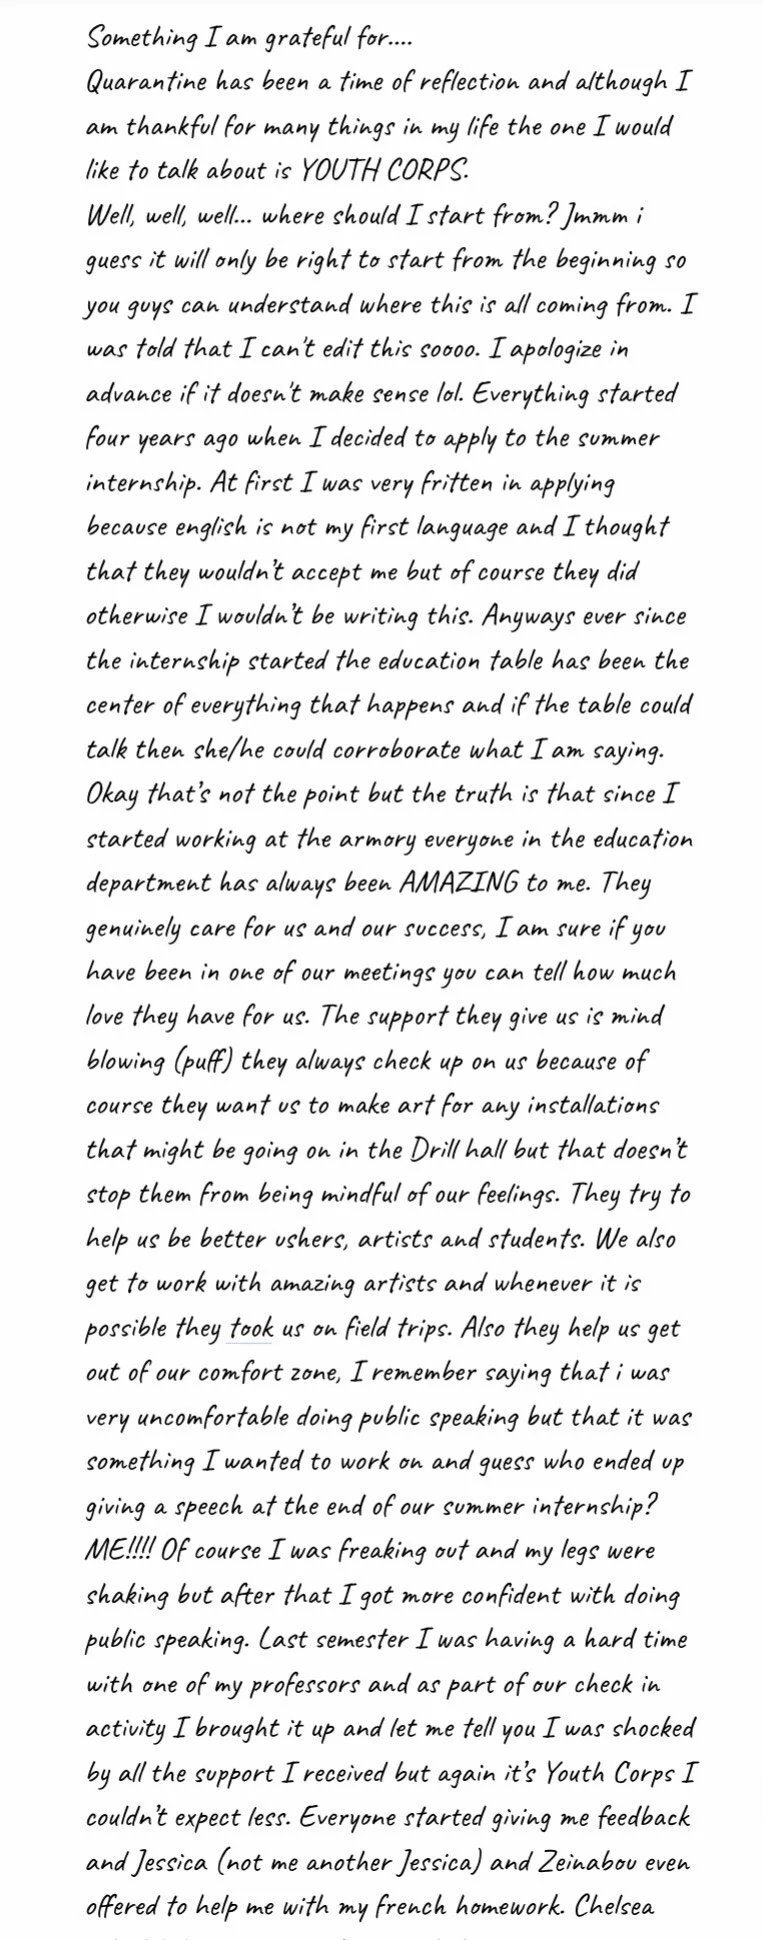 Something I am grateful for....
Quarantine has been a time of reflection and although I
am thankful for many things in my life the one I would
like to talk about is YOUTH CORPS.
Well, well, well... where should I start from? Jmmm i
guess it will only be right to start from the beginning so
you guys can understand where this is all coming from. I
was told that I can't edit this soooo. I apologize in
advance if it doesn't make sense lol. Everything started
four years ago when I decided to apply to the summer
internship. At first I was very fritten in applying
because english is not my first language and I thought
that they wouldn't accept me but of course they did
otherwise I wouldn't be writing this. Anyways ever since
the internship started the education table has been the
center of everything that happens and if the table could
talk then she/he could corroborate what I am saying.
Okay that's not the point but the truth is that since I
started working at the armory everyone in the education
department has always been AMAZING to me. They
genuinely care for us and our success, I am sure if you
have been in one of our meetings you can tell how much
love they have for us. The support they give us is mind
blowing (puff) they always check up on us because of
course they want us to make art for any installations
that might be going on in the Drill hall but that doesn't
stop them from being mindful of our feelings. They try to
help us be better ushers, artists and students. We also
get to work with amazing artists and whenever it is
possible they took us on field trips. Also they help us get
out of our comfort zone, I remember saying that i was
very uncomfortable doing public speaking but that it was
something I wanted to work on and guess who ended up
giving a speech at the end of our summer internship?
ME!!!! Of course I was freaking out and my legs were
shaking but after that I got more confident with doing
public speaking. Last semester I was having a hard time
with one of my professors and as part of our check in
activity I brought it up and let me tell you I was shocked
by all the support I received but again it's Youth Corps I
couldn't expect less. Everyone started giving me feedback
and Jessica (not me another Jessica) and Zeinabou even
offered to help me with my french homework. Chelsea